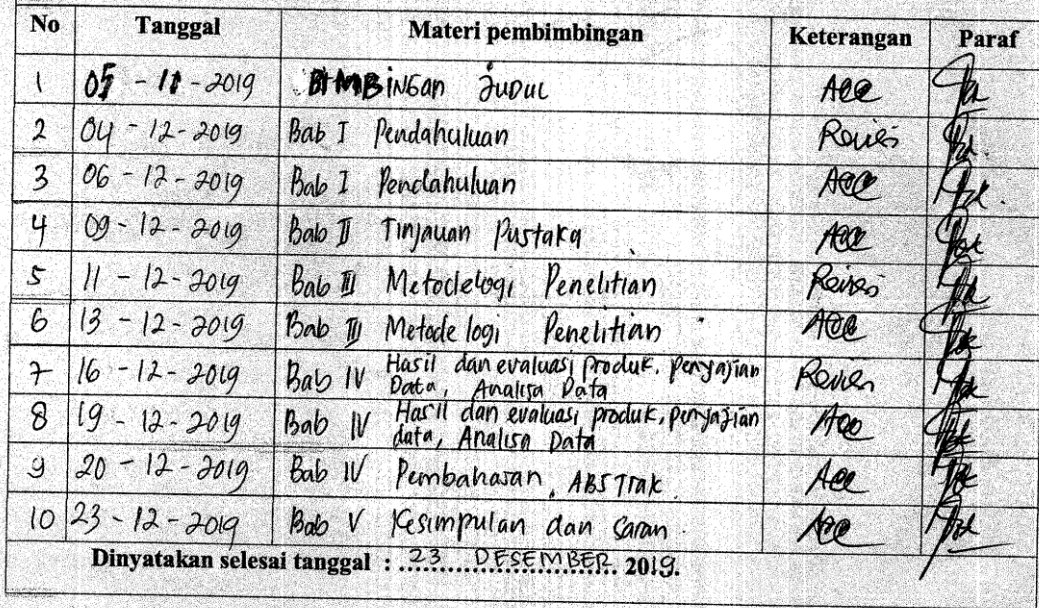 No Tanggal Materi pembimbingan Keterangan Paraf
1 05 - 11 - 2019 BIMBINGAN JUDUL Acc
2 04 - 12 - 2019 Bab I Pendahuluan Revisi
3 06 - 12 - 2019 Bab I Pendahuluan Acc
4 09 - 12 - 2019 Bab II Tinjauan Pustaka Acc
5 11 - 12 - 2019 Bab III Metodelogi Penelitian Revisi
6 13 - 12 - 2019 Bab III Metode logi Penelitian Acc
7 16 - 12 - 2019 Bab IV Hasil dan evaluasi produk, penyajian
Data, Analisa Data Revisi
8 19 - 12 - 2019 Bab IV Hasil dan evaluasi produk, penyajian
data, Analisa Data Acc
9 20 - 12 - 2019 Bab IV Pembahasan, ABSTrak Acc
10 23 - 12 - 2019 Bab V Kesimpulan dan saran. Acc
Dinyatakan selesai tanggal : 23 DESEMBER 2019.